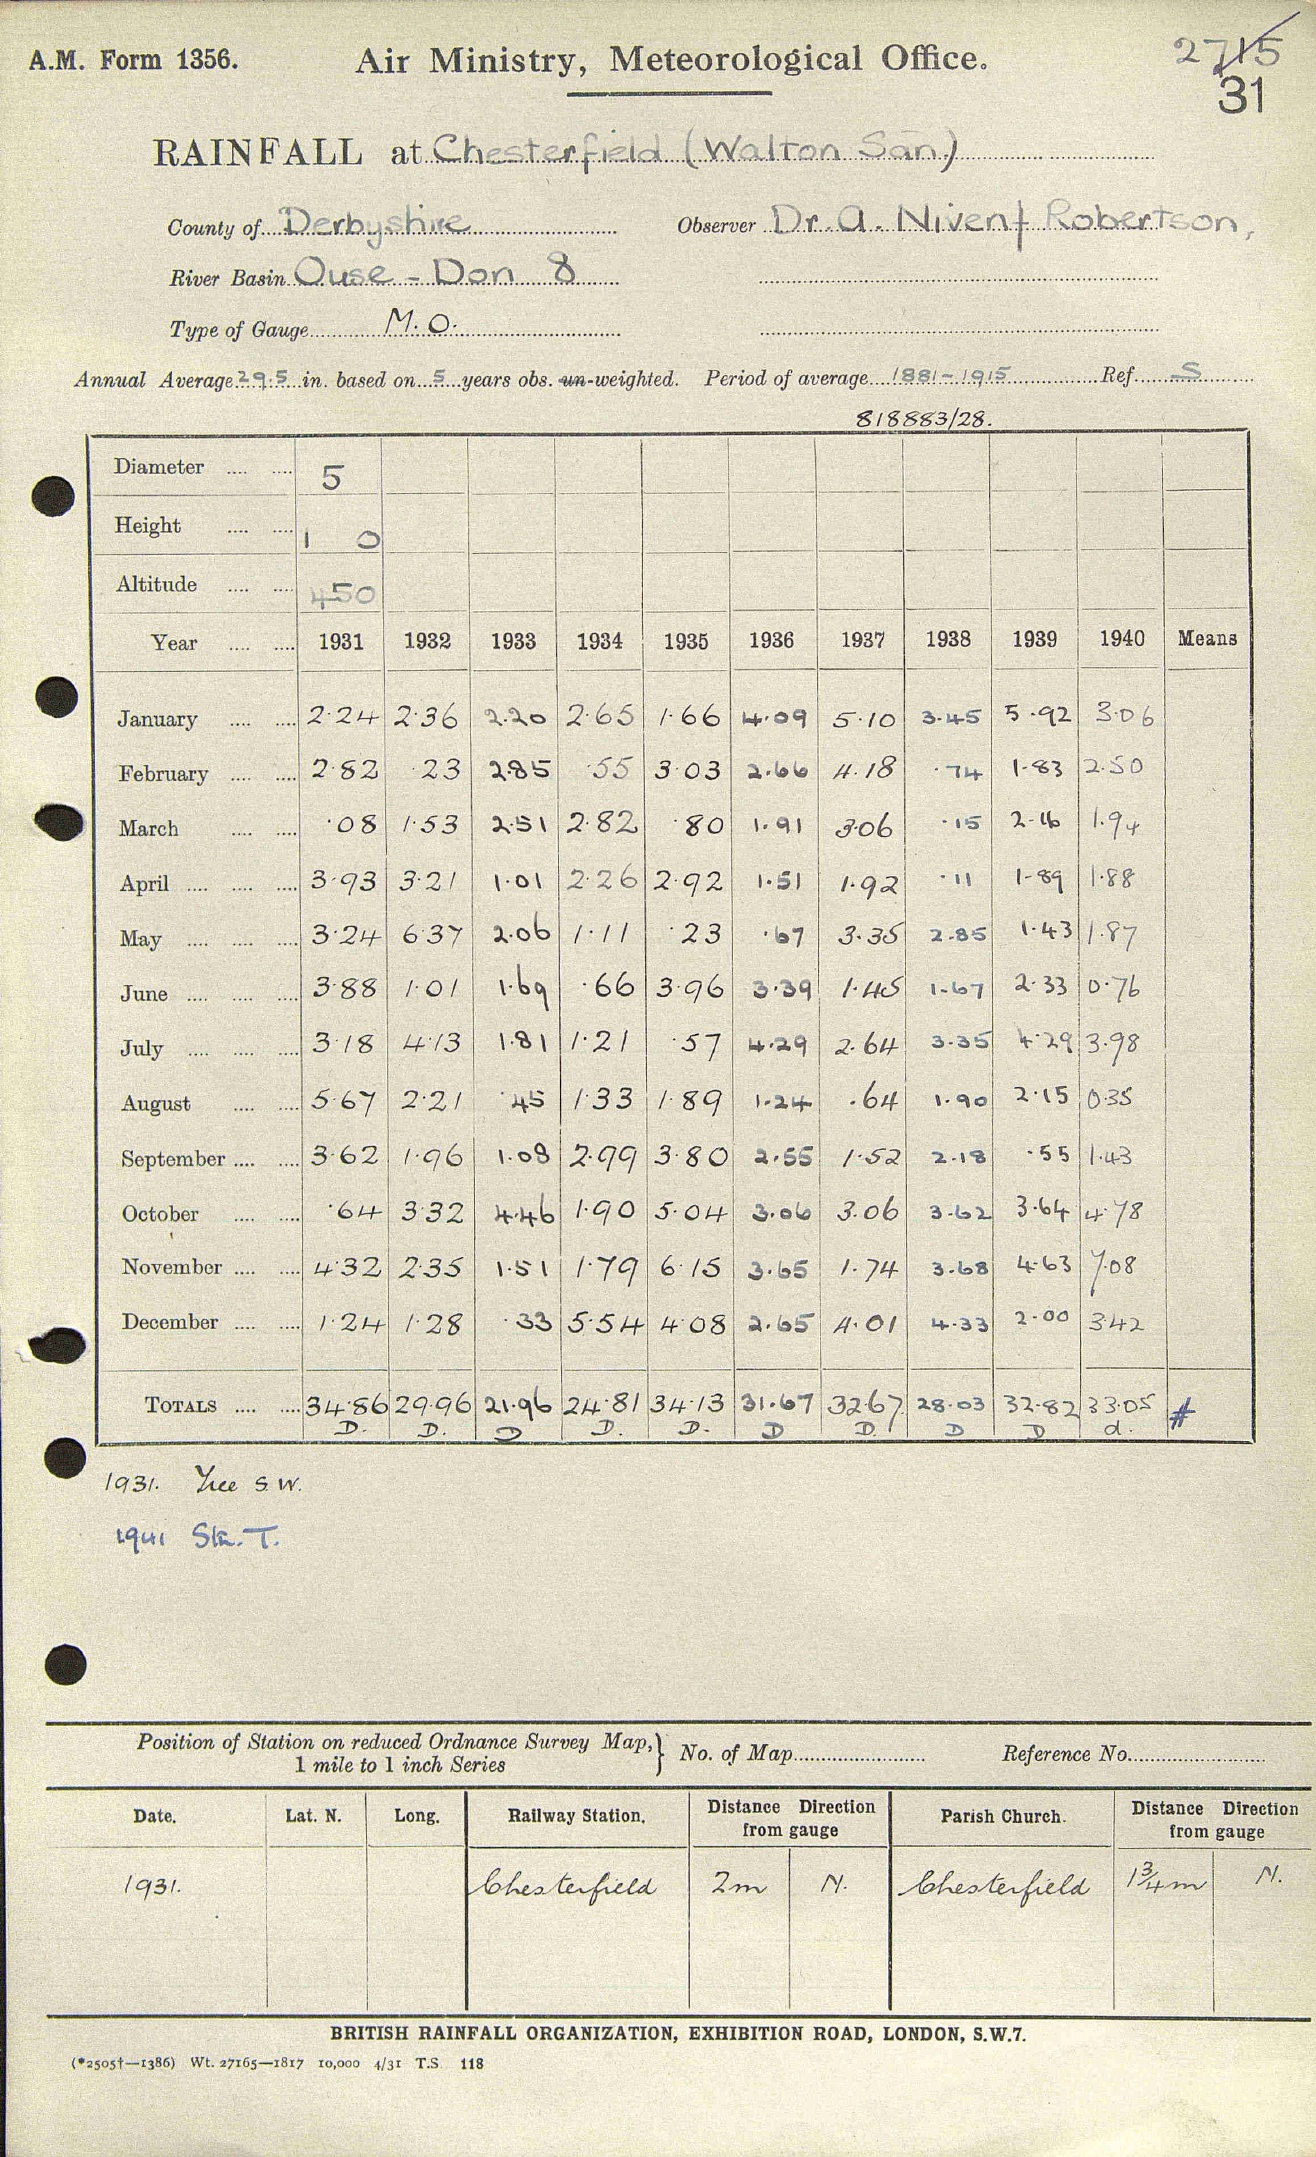 A.M. Form 1356.
Air Ministry, Meteorological Office.
2715
31
RAINFALL at Chesterfield (Walton San.)
County of Derbyshire Observer Dr. A. Niven Robertson,
River Basin Ouse - Don 8
Type of Gauge M.O.
Annual Average 29.5 in. based on 5 years obs. un-weighted. Period of average 1881-1915 Ref. S
818883/28.
Diameter 5
Height 1 0
Altitude 450
Year 1931 1932 1933 1934 1935 1936 1937 1938 1939 1940 Means
January 2.24 2.36 2.20 2.65 1.66 4.09 5.10 3.45 5.92 3.06
February 2.82 .23 2.85 .55 3.03 2.66 4.18 .74 1.83 2.50
March .08 1.53 2.51 2.82 .80 1.91 3.06 .15 2.16 1.94
April 3.93 3.21 1.01 2.26 2.92 1.51 1.92 .11 1.89 1.88
May 3.24 6.37 2.06 1.11 .23 .67 3.35 2.85 1.43 1.87
June 3.88 1.01 1.69 .66 3.96 3.39 1.45 1.67 2.33 0.76
July 3.18 4.13 1.81 1.21 .57 4.29 2.64 3.35 4.29 3.98
August 5.67 2.21 .45 1.33 1.89 1.24 .64 1.90 2.15 0.35
September 3.62 1.96 1.08 2.99 3.80 2.55 1.52 2.18 .55 1.43
October .64 3.32 4.46 1.90 5.04 3.06 3.06 3.62 3.64 4.78
November 4.32 2.35 1.51 1.79 6.15 3.65 1.74 3.68 4.63 7.08
December 1.24 1.28 .33 5.54 4.08 2.65 4.01 4.33 2.00 3.42
TOTALS 34.86 29.96 21.96 24.81 34.13 31.67 32.67 28.03 32.82 33.05 #
D. D. D D. D. D D. D D d.
1931. Tree S.W.
1941 Stn. T.
Position of Station on reduced Ordnance Survey Map, } No. of Map Reference No.
1 mile to 1 inch Series
Date. Lat. N. Long. Railway Station. Distance Direction from gauge Parish Church. Distance Direction from gauge
1931. Chesterfield 2m N. Chesterfield 1¾m N.
BRITISH RAINFALL ORGANIZATION, EXHIBITION ROAD, LONDON, S.W.7.
(*2505†—1386) Wt. 27165—1817 10,000 4/31 T.S. 118